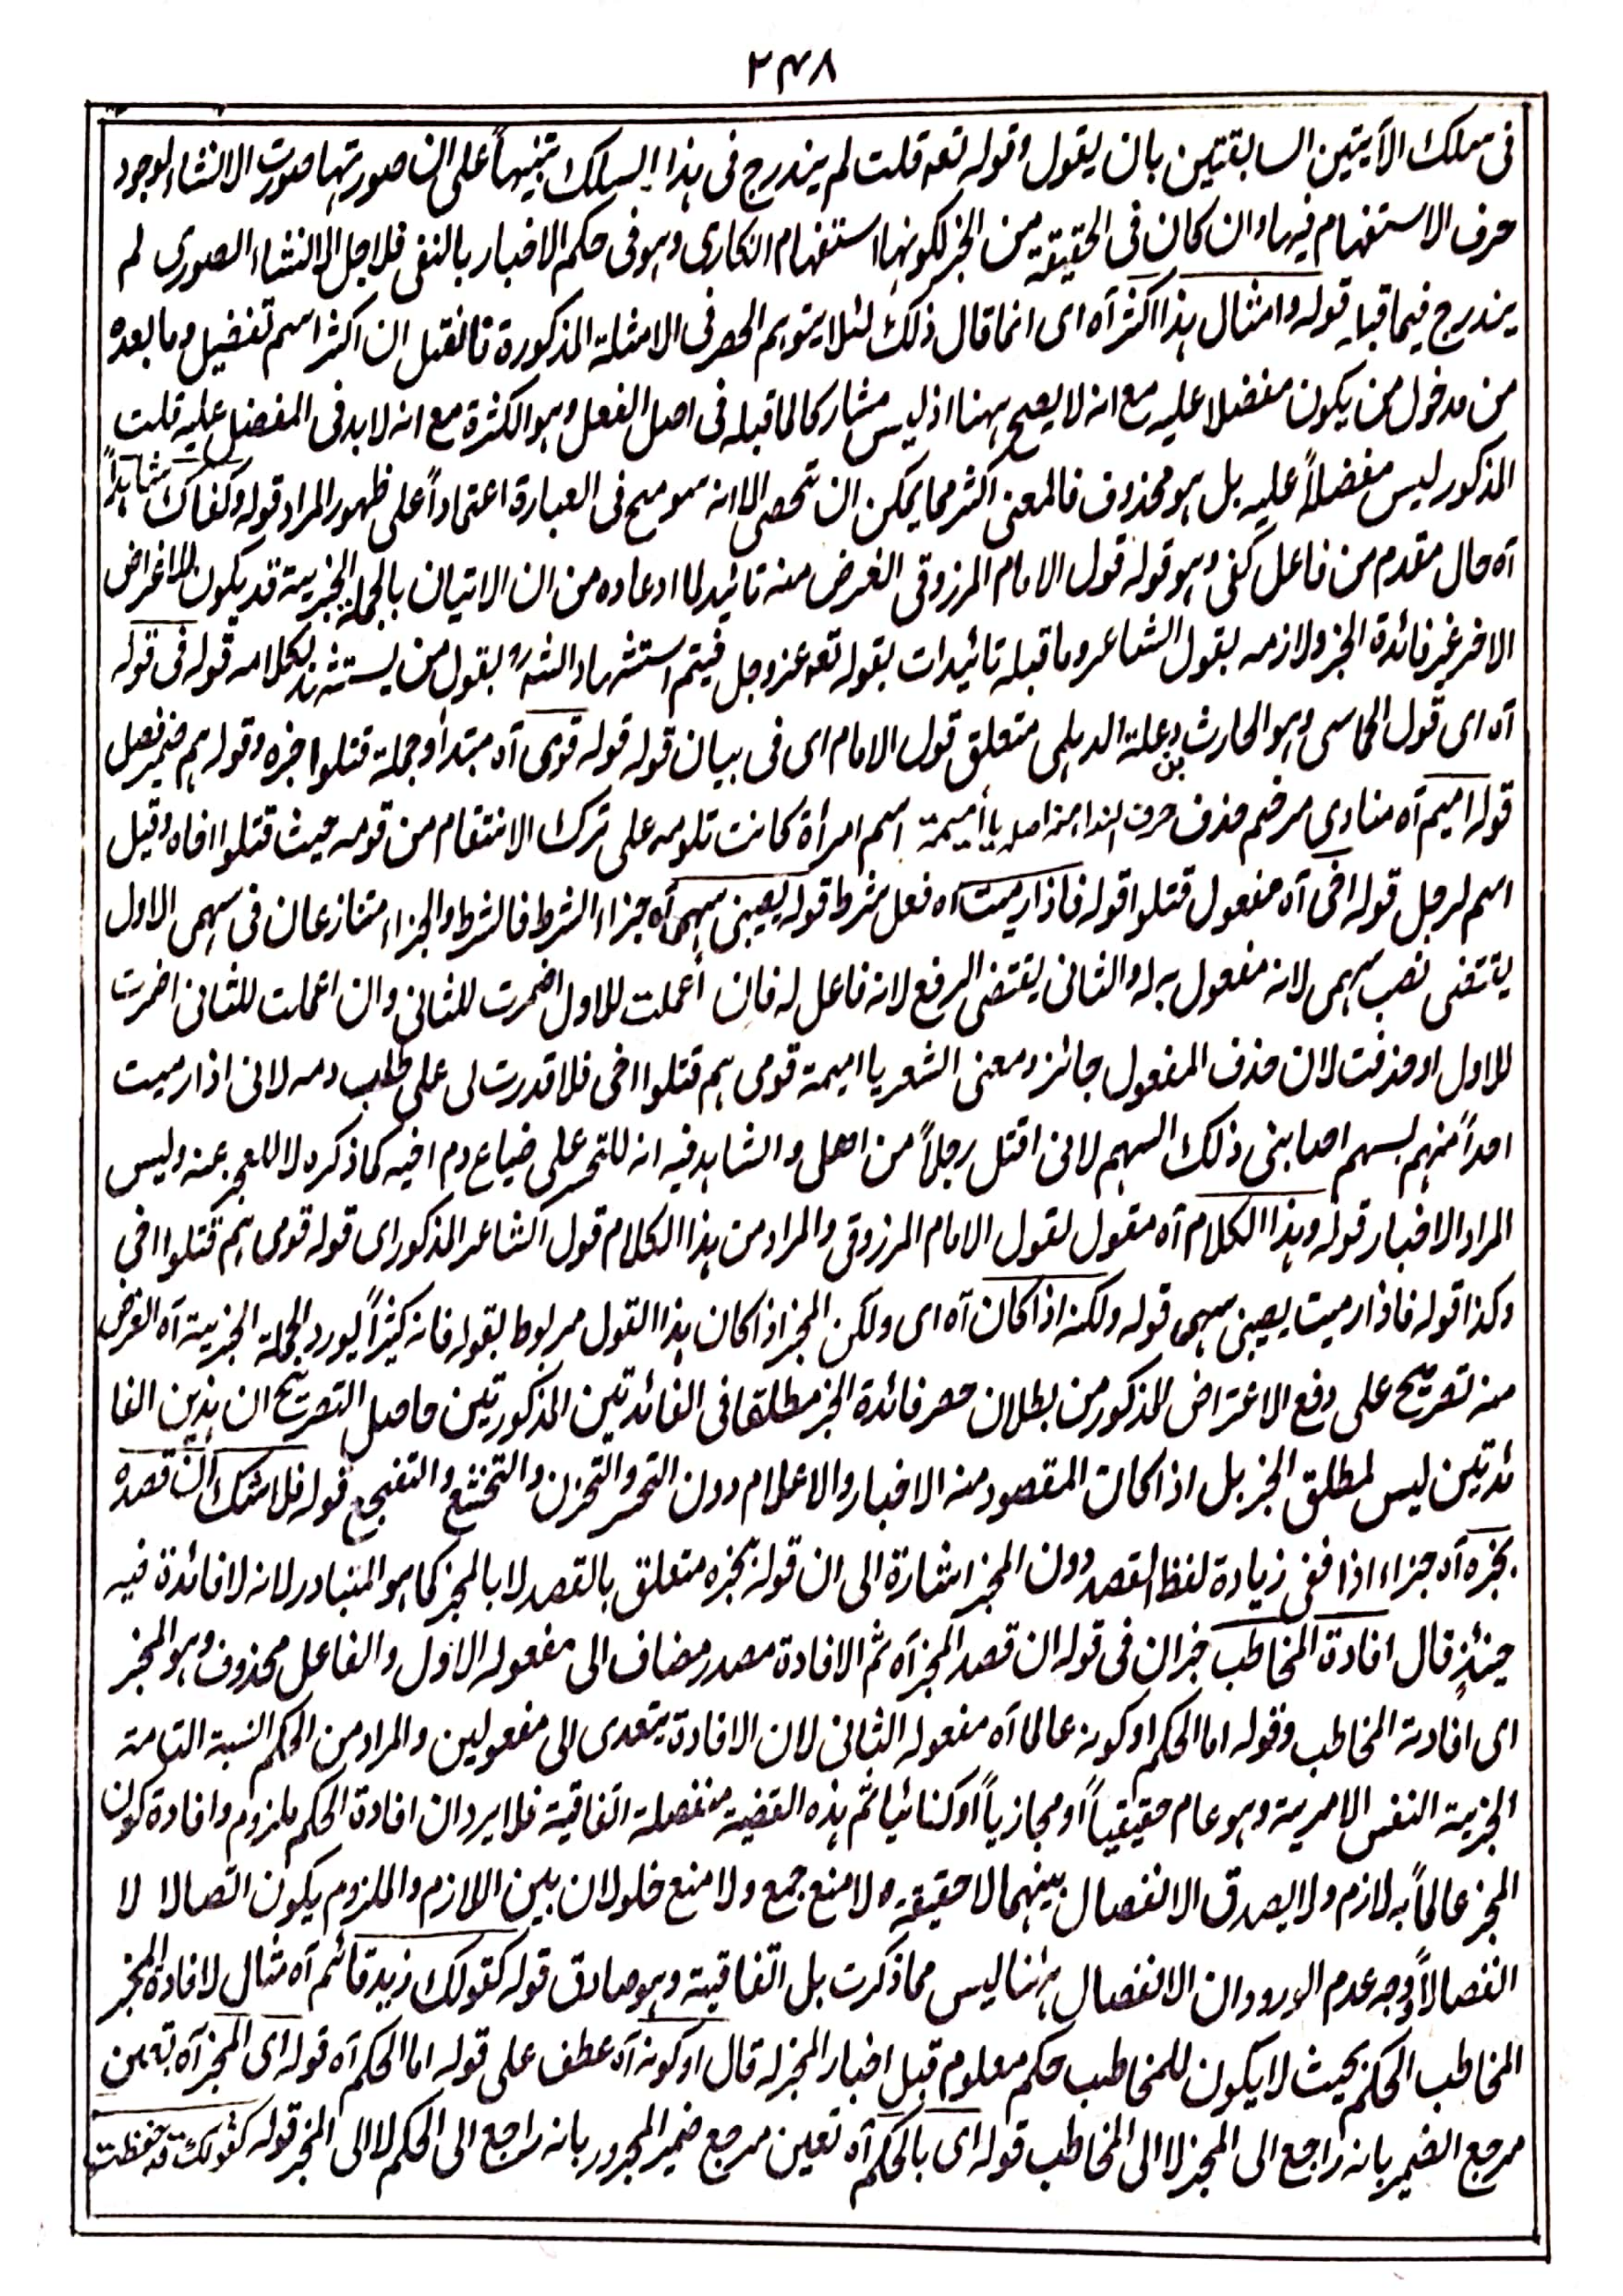 ٢٣٨
فى سلك الآيتين السابقتين بان يقول وقوله تعه قلت لم يندرج فى هذا السلك تنبيهاً على ان صورتها صورت الانشاء لوجود
حرف الاستفهام فيها وان كان فى الحقيقة من الخبر لكونها استفهام انكارى وهو فى حكم الاخبار بالنفى فلاجل الانشاء الصورى لم
يندرج فيما قبله قوله وامثال هذا اكثر آه اى انما قال ذلك لئلا يتوهم الحصر فى الامثلة المذكورة فانقيل ان اكثر اسم تفضيل وما بعده
من مدخول من يكون مفضلا عليه مع انه لا يصح ههنا اذ ليس مشاركا لما قبله فى اصل الفعل وهو الكثرة مع انه لا بد فى المفضل عليه قلت
المذكور ليس مفضلاً عليه بل هو محذوف فالمعنى اكثر مما يمكن ان تحصى الا انه سومح فى العبارة اعتماداً على ظهور المراد قوله وكفاك شاهداً
آه حال مقدم من فاعل كفى وهو قوله قول الامام المرزوقى الغرض منه تائيد لما ادعاه من ان الاتيان بالجملة الخبرية قد يكون للاغراض
الاخر غير فائدة الخبر ولازمه بقول الشاعر وما قبله تائيدات بقوله تعه عز وجل فيتم استشهاد الشئ بقول من يستشهد بكلامه قوله فى قوله
آه اى قول الحماسى وهو الحارث بن وعلة الديلمى متعلق قول الامام اى فى بيان قوله قوله قومى آه مبتدأ وجملة قتلوا خبره وقوله هم ضمير فصل
قوله اميم آه منادى مرخم حذف حرف الندا منه اصله يا أميمة اسم امرأة كانت تلومه على ترك الانتقام من قومه حيث قتلوا اخاه وقيل
اسم لرجل قوله اخى آه مفعول قتلوا قوله فاذا رميت آه فعل شرط قوله يصيبنى سهمى آه جزاء الشرط فالشرط والجزاء متنازعان فى سهمى الاول
يقتضى نصب سهمى لانه مفعول به له والثانى يقتضى الرفع لانه فاعل له فان أعملت للاول اضمرت للثانى وان اعملت للثانى اضمرت
للاول او حذفت لان حذف المفعول جائز ومعنى الشعر يا اميمة قومى هم قتلوا اخى فلا قدرت لى على طلب دمه لانى اذا رميت
احداً منهم بسهم اصابنى ذلك السهم لانى اقتل رجلاً من اهلى والشاهد فيه انه للتحسر على ضياع دم اخيه كما ذكره لا للعجز عنه وليس
المراد الاخبار قوله وهذا الكلام آه مقول لقول الامام المرزوقى والمراد من هذا الكلام قول الشاعر المذكور اى قوله قومى هم قتلوا اخى
وكذا قوله فاذا رميت يصيبنى سهمى قوله ولكنه اذا كان آه اى ولكن المخبر اذا كان هذا القول مربوط بقوله فانه كثيراً يورد الجملة الخبرية آه الغرض
منه تصريح على دفع الاعتراض المذكور من بطلان حصر فائدة الخبر مطلقا فى الفائدتين المذكورتين حاصل التصريح ان هذين الفا
ئدتين ليس لمطلق الخبر بل اذا كان المقصود منه الاخبار والاعلام دون التحسر والتحزن والتخشع والتفجع قوله فلا شك ان قصده
بخبره آه جزاء اذا ففى زيادة لفظ القصد دون المخبر اشارة الى ان قوله بخبره متعلق بالقصد لا بالمخبر كما هو المتبادر لانه لا فائدة فيه
حينئذٍ قال افادة المخاطب خبر ان فى قوله ان قصد المخبر آه ثم الافادة مصدر مضاف الى مفعوله الاول والفاعل محذوف وهو المخبر
اى افادته المخاطب وقوله اما الحكم او كونه عالما آه مفعوله الثانى لان الافادة يتعدى الى مفعولين والمراد من الحكم النسبة التامة
الخبرية النفس الامرية وهو عام حقيقياً او مجازياً او كنائيا ثم هذه القضية منفصلة اتفاقية فلا يرد ان افادة الحكم ملزوم وافادة كون
المخبر عالماً به لازم ولا يصدق الانفصال بينهما لا حقيقة ولا منع جمع ولا منع خلو لان بين اللازم والملزوم يكون اتصالا لا
انفصالاً وجه عدم الورود ان الانفصال ههنا ليس مما ذكرت بل اتفاقية وهو صادق قوله كقولك زيد قائم آه مثال لافادة المخبر
المخاطب الحكم بحيث لا يكون للمخاطب حكم معلوم قبل اخبار المخبر له قال او كونه آه عطف على قوله اما الحكم آه قوله اى المخبر آه تعين
مرجع الضمير بانه راجع الى المخبر لا الى المخاطب قوله اى بالحكم آه تعين مرجع ضمير المجرور بانه راجع الى الحكم لا الى المخبر قوله كقولك قد حفظت